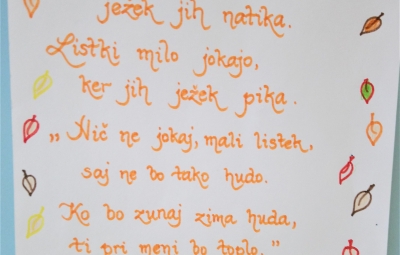 ježek jih natika.
Listki milo jokajo,
ker jih ježek pika.
„Nič ne jokaj, mali listek,
saj ne bo tako hudo.
Ko bo zunaj zima huda,
ti pri meni bo toplo."